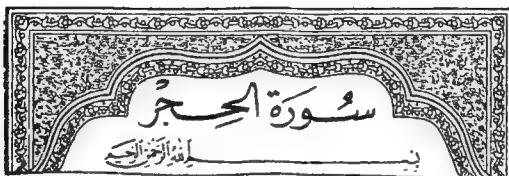 سُورَة الحِجْر
بِسْمِ اللهِ الرَّحْمٰنِ الرَّحِيمِ